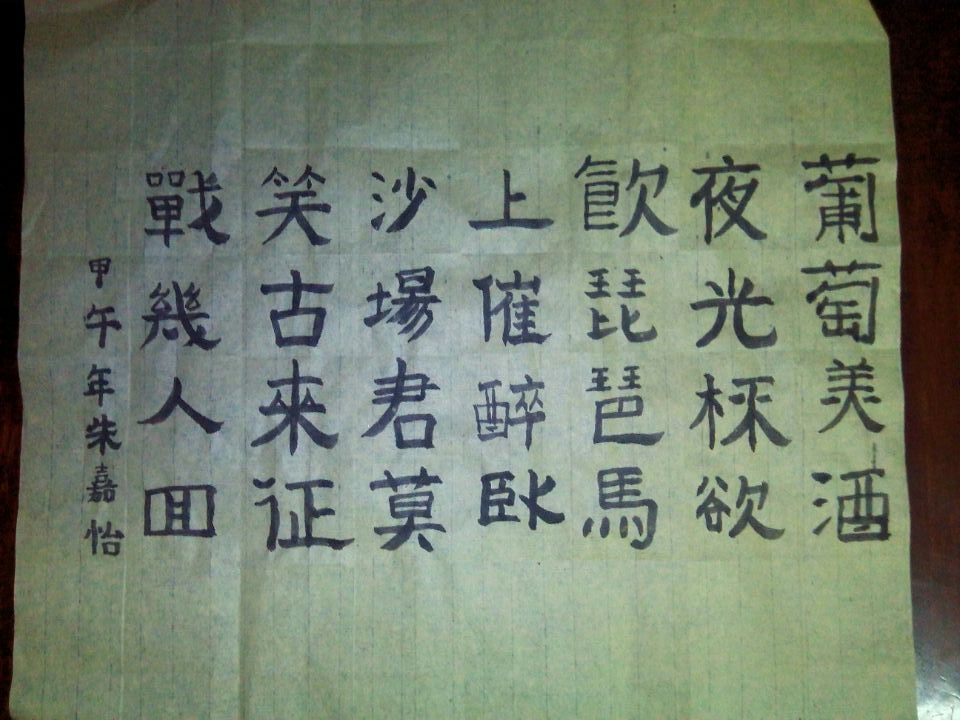 葡萄美酒
夜光杯欲
飲琵琶馬
上催醉臥
沙場君莫
笑古來征
戰幾人回
甲午年朱嘉怡